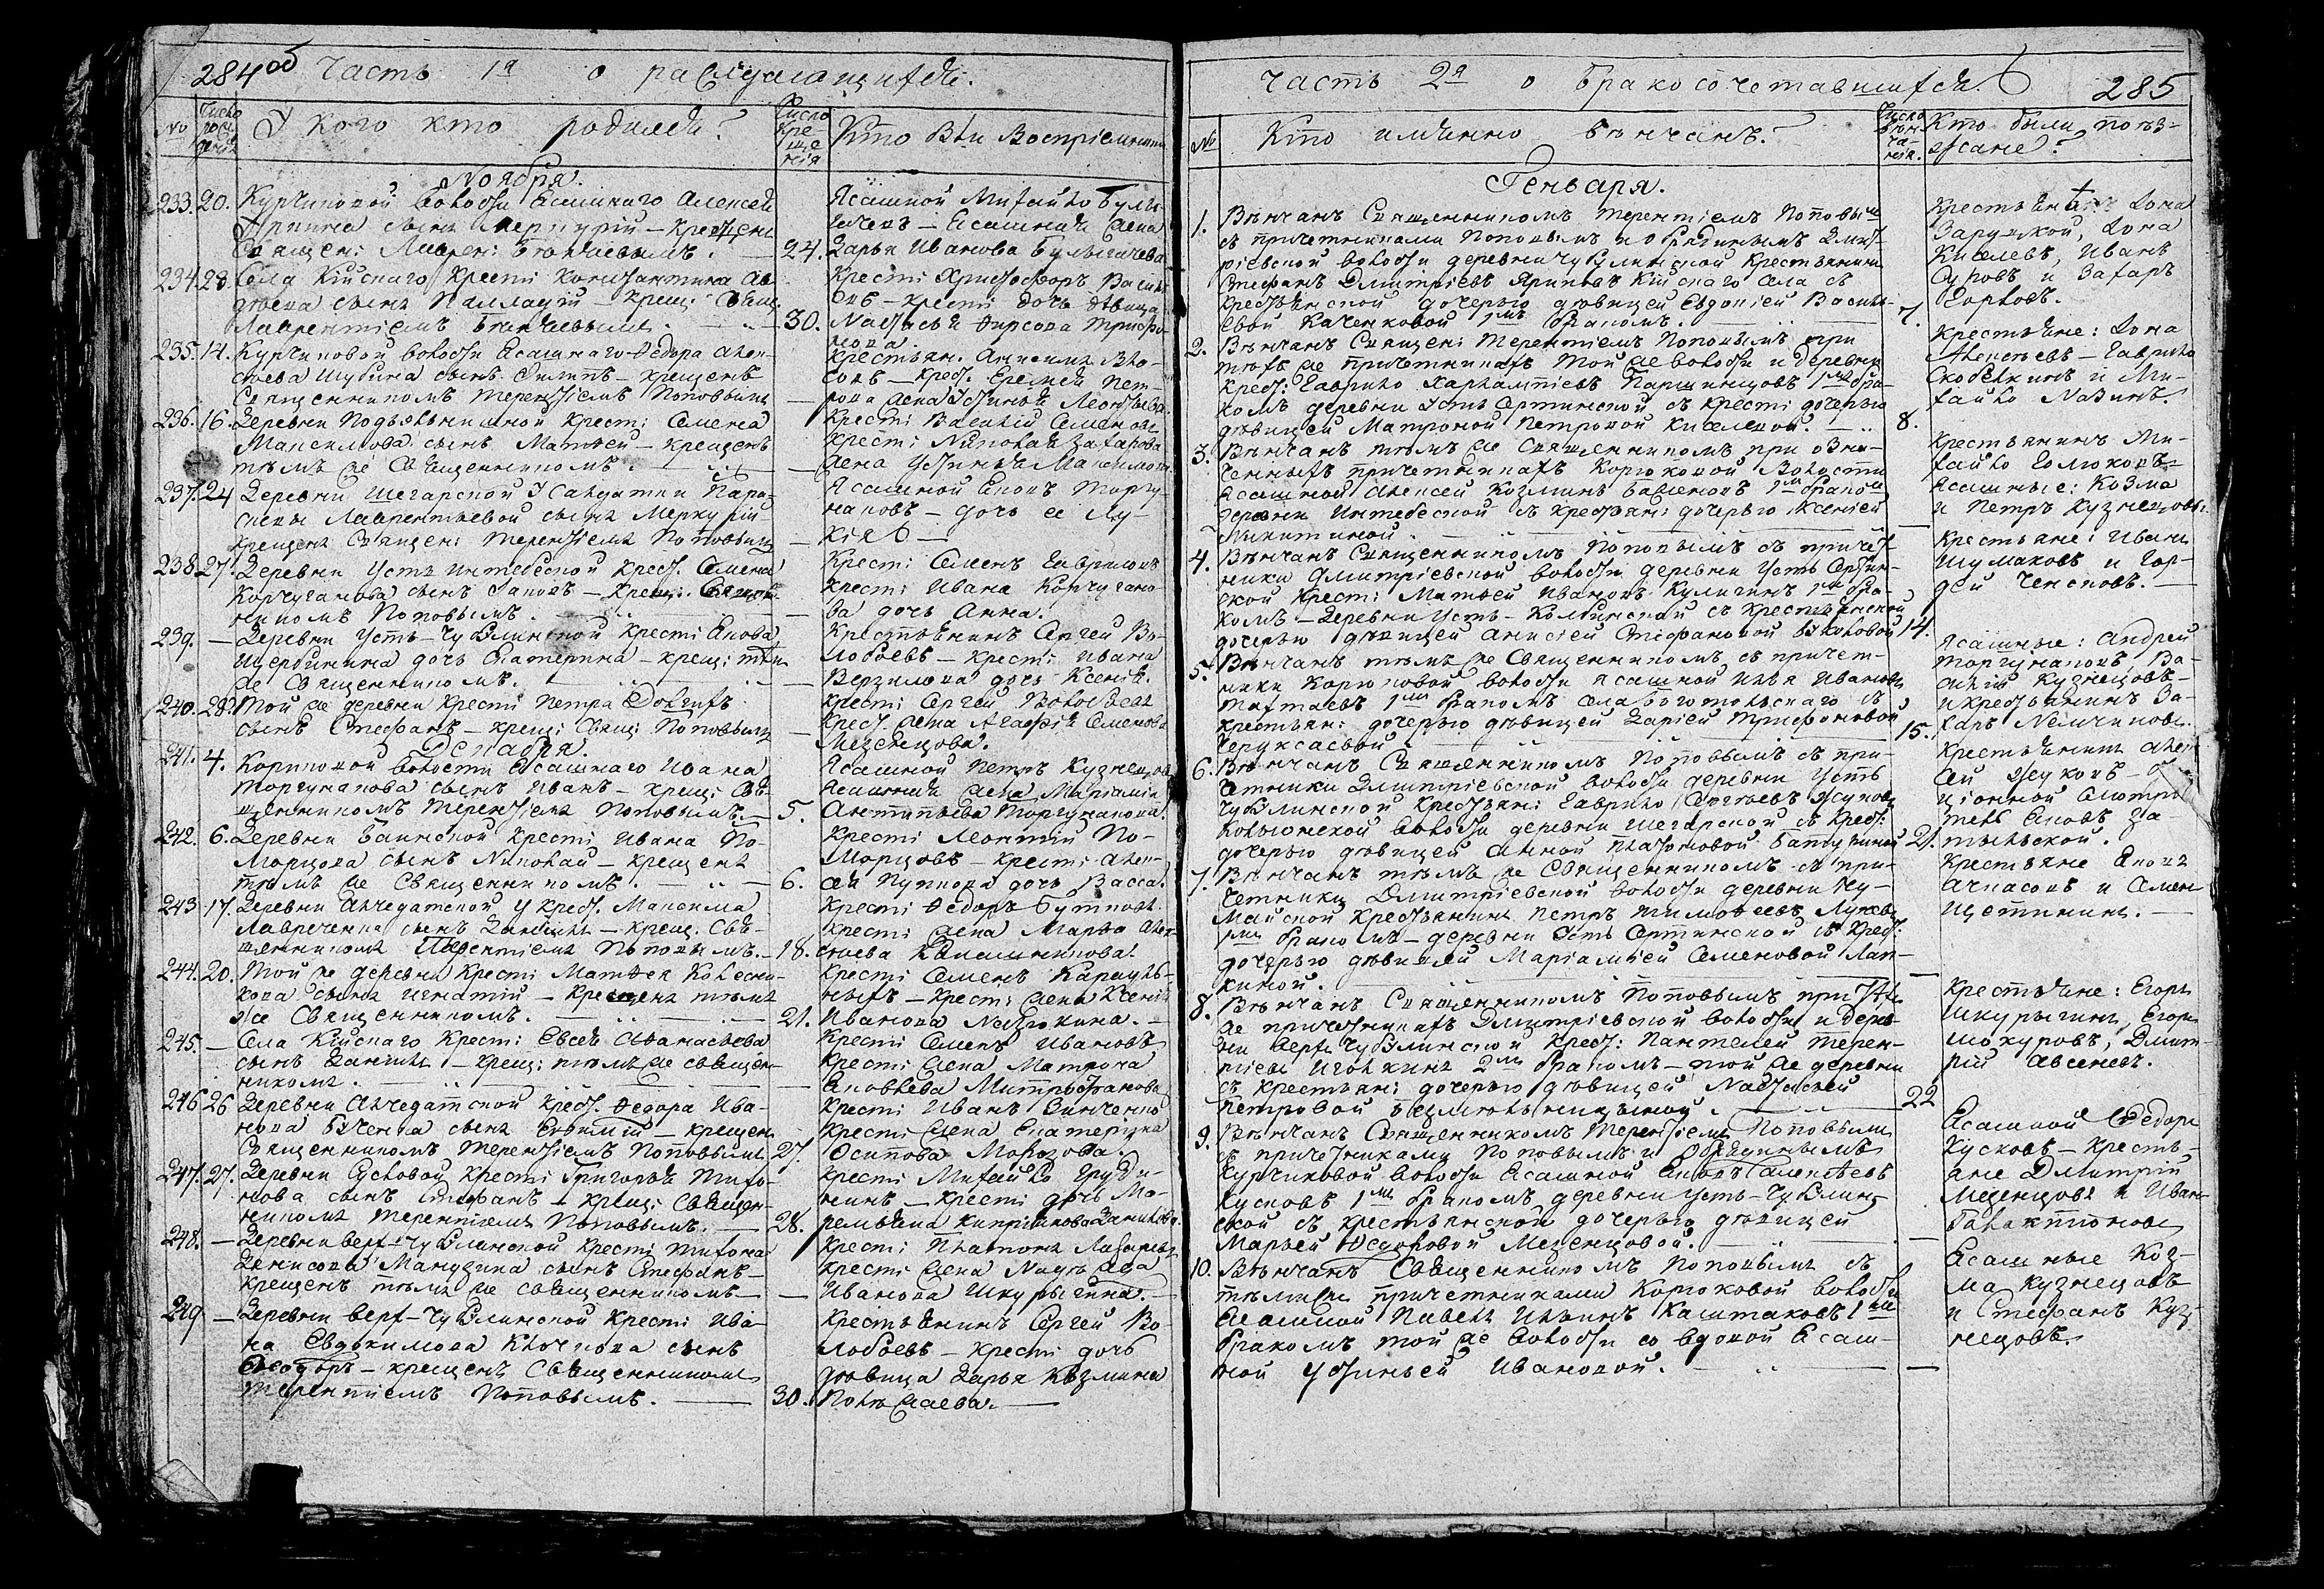 284 об Часть 1я о раждающихся.
№ Число рождения У кого кто родился? Число крещения Кто были Восприемники
Ноября.
233. 20. Курчиковой волости Ясашнаго Алексея
сынъ Меркурій – Крещенъ
Священ:
Ясашной Михайло
Ясашная жена
24. Дарья Иванова Булыгачева
234. 28. Села Кійскаго Крести Константина
сынъ Палладій – крещ: Свящ
Лаврентіемъ
Крести Христофоръ
крести дочь дѣвица
30. Настасья Фирсова
235. 14. Курчиковой волости Ясашнаго Федора
Шубина сынъ Филипъ – крещенъ
Священникомъ Терентіемъ Поповымъ
Крестьян. Анисимъ
крес. Еремея
жена Устинья Леонтьева.
236. 16. Деревни Подъельнишной Крест: Семена
Максимова сынъ Матвей – крещенъ
тѣмъ же Священникомъ.
Крести Василій Семеновъ
Крест: Николая Захарова
жена Устинья Максимова
237. 24 Деревни Шегарской У Солдатки
Лаврентьевой сынъ Меркурій
крещенъ Священ: Терентіемъ Поповымъ
Ясашной Яковъ Торгу-
наковъ – дочь ее Лу-
кія
238. 27. Деревни Усть Интебеской Крес. Семена
Корчуганова сынъ Яковъ – Крещ: Священ-
никомъ Поповымъ.
Крести Семенъ Гавриловъ
Крести Ивана Корчугано-
ва дочь Анна.
239. Деревни Усть-Чубулинской Крести Якова
Щербинина дочь Екатерина – крещ: тѣмъ
же Священникомъ.
Крестьянинъ Сергей Во-
лобоевъ – крест: Ивана
Верзилова дочь Ксенія.
240. 28. Той же деревни Крести Петра Долгихъ
сынъ Стефанъ – крещ: Свящ: Поповымъ
Крести Сергей
Крес. жена Агафія Семенова
Мезенцова.
Декабря.
241. 4. волости Ясашнаго Ивана
Торгунакова сынъ Иванъ – крещ: Свя-
щенникомъ Терентіемъ Поповымъ.
Ясашной Петръ Кузнецовъ
Ясашная жена
5. Антипьева Торгунакова.
242. 6. Деревни Баимской Крести Ивана По-
морцова сынъ Николай – крещенъ
тѣмъ же Священникомъ.
Крести Леонтій По-
морцовъ – крести Алек-
6. сея дочь Васса.
243 17. Деревни Алчедатской У Крес. Максима
Лавреченка сынъ Даніилъ – крещ. Свя-
щенникомъ Терентіемъ Поповымъ.
Крести Федоръ
Крести жена Марфа
18. Калашникова.
244. 20. Той же деревни Крести Матвея Колесни-
кова сынъ Игнатій – Крещенъ тѣмъ
же Священникомъ.
Крести Семенъ Карауль-
ныхъ – крест: жена Ксенія
21. Иванова
245. Села Кійскаго Крест: Евсея Афанасьева
сынъ Даніилъ – крещ: тѣмъ же священ-
никомъ.
Крести Семенъ Ивановъ
Крести жена Матрона
Яковлева Митрофанова
246 26 Деревни Алчедатской Крес. Федора Ива-
нова сынъ – крещен
Священникомъ Терентіемъ Поповымъ
Крест: Иванъ Зинченко
Крести жена Екатерина
27. Осипова Морозова.
247. 27. Деревни Сусловой Крести Григорья Тихо-
нова сынъ Стефанъ – крещ: Священ-
никомъ Терентіемъ Поповымъ.
Крести Михайло
Крести дочь Ма-
28.
248. Деревни верх-Чубулинской Крести Тихона
Денисова сынъ Стефанъ –
крещенъ тѣмъ же священникомъ
Крест: Платонъ Лазаревъ
Крести жена Надежда
Иванова Шкурыгина.
249 Деревни верх-Чубулинской Крести Ива-
на Евдокимова сынъ
Феодоръ – крещенъ Священникомъ
Терентіемъ Поповымъ.
Крестьянинъ Сергей Во-
лобоевъ – крести дочь
дѣвица Дарья Козмина
30. Полежаева.
Часть 2я о бракосочетавшихся. 285
№ Кто именно вѣнчанъ? Число вѣнчанія. Кто были поѣзжане?
Генваря.
1. Вѣнчанъ Священникомъ Терентіемъ Поповымъ
съ причетниками Поповымъ и Обрядинымъ Дмит-
ріевской волости деревни Чубулинской Крестьянинъ
Стефанъ Дмитріевъ Кійскаго Села съ
Крестьянской дочерью дѣвицей Евдокіей Василь-
евой Каченковой 1мъ бракомъ. 7.
Крестьяне Фома
Заруцкой, Фома
Киселевъ, Иванъ
Суровъ и Захаръ
Горловъ.
2. Вѣнчанъ Священ: Терентіемъ Поповымъ при
тѣхъ же причетникахъ той же волости и деревни
Крес: Гаврило Харлампіевъ Паршинцовъ 1мъ бра-
комъ деревни Усть Сертинской съ крести дочерью
дѣвицей Матроной Петровой Киселевой. 8.
Крестьяне: Фома
Алексѣевъ – Гаврило
Скобелкинъ и Ми-
хайло Назинъ.
3. Вѣнчанъ тѣмъ же Священникомъ при озна-
ченныхъ причетникахъ Корюковой Волости
Ясашной Алексей Козминъ 1мъ бракомъ
деревни Интебеской съ крестьян: дочерью Ксеніей
Никитиной.
Крестьянинъ Ми-
хайло
Ясашные: Козма
и Петръ Кузнецовы.
4. Вѣнчанъ Священникомъ Поповымъ съ причет-
ники Дмитріевской волости деревни Усть Серти-
ской Крест: Матвей Ивановъ Кулигинъ 1мъ бра-
комъ – Деревни Усть-Колбинской съ Крестьянской
дочерью дѣвицей Анисіей Стефановой 14.
Крестьяне: Иванъ
Шумаковъ и Гор-
дей Ченсковъ.
5. Вѣнчанъ тѣмъ же Священникомъ съ причет-
ники Корюковой волости Ясашной Илья Ивановъ
Тахтаевъ 1мъ бракомъ села Боготольскаго съ
крестьян: дочерью дѣвицей Дарьей Трифоновой
15.
Ясашные: Андрей
Торгунаковъ, Ва-
силій Кузнецовъ
и крестьянинъ За-
харъ Немчиновъ.
6. Вѣнчанъ Священникомъ Поповымъ съ при-
четники Дмитріевской волости деревни Усть
Чубулинской Крестьян: Гаврило Сергѣевъ Жуковъ
волости деревни Шегарской съ крес:
дочерью дѣвицей Анной Платоновой 21.
Крестьянинъ Алек-
сей Жуковъ –
ціонной Смотри-
тель Яковъ За-
тыльской.
7. Вѣнчанъ тѣмъ же Священникомъ съ при-
четники Дмитріевской волости деревни Чу-
майской Крестьянинъ Петръ Тимофеевъ
1мъ бракомъ – деревни Усть Сертинской съ Крес:
дочерью дѣвицей Маріамьей Семеновой Лап-
киной.
Крестьяне Яковъ
и Семенъ
Щетининъ.
8. Вѣнчанъ Священникомъ Поповымъ при тѣхъ
же причетникахъ Дмитріевской волости и дерев-
ни Верхъ Чубулинской Крес: Пантелей Терен-
тіевъ Иголкинъ 2мъ бракомъ – той же деревни
съ крестьян: дочерью дѣвицей Настасьей
Петровой 22
Крестьяне: Егоръ
Шкурыгинъ, Егоръ
Шокуровъ, Дмит-
рій Авсеневъ.
9. Вѣнчанъ Священникомъ Терентіемъ Поповымъ
съ причетниками Поповымъ и Обрядинымъ
Курчиковой волости Ясашной Яковъ Алексѣевъ
Кусковъ 1мъ бракомъ, деревни Усть-Чубулин-
ской съ крестьянской дочерью дѣвицей
Марьей Федоровой Мезенцовой.
Ясашной Федоръ
Кусковъ – Кресть-
яне Дмитрій
Мезенцовъ и Иванъ
Галактіоновъ
10. Вѣнчанъ Священникомъ Поповымъ съ
тѣми же причетниками Корюковой волости
Ясашной Павелъ Ильинъ Каштаковъ 1мъ
бракомъ той же волости со вдовой Ясаш-
ной Устиньей Ивановой.
Ясашные Коз-
ма Кузнецовъ
и Стефанъ Куз-
нецовъ.